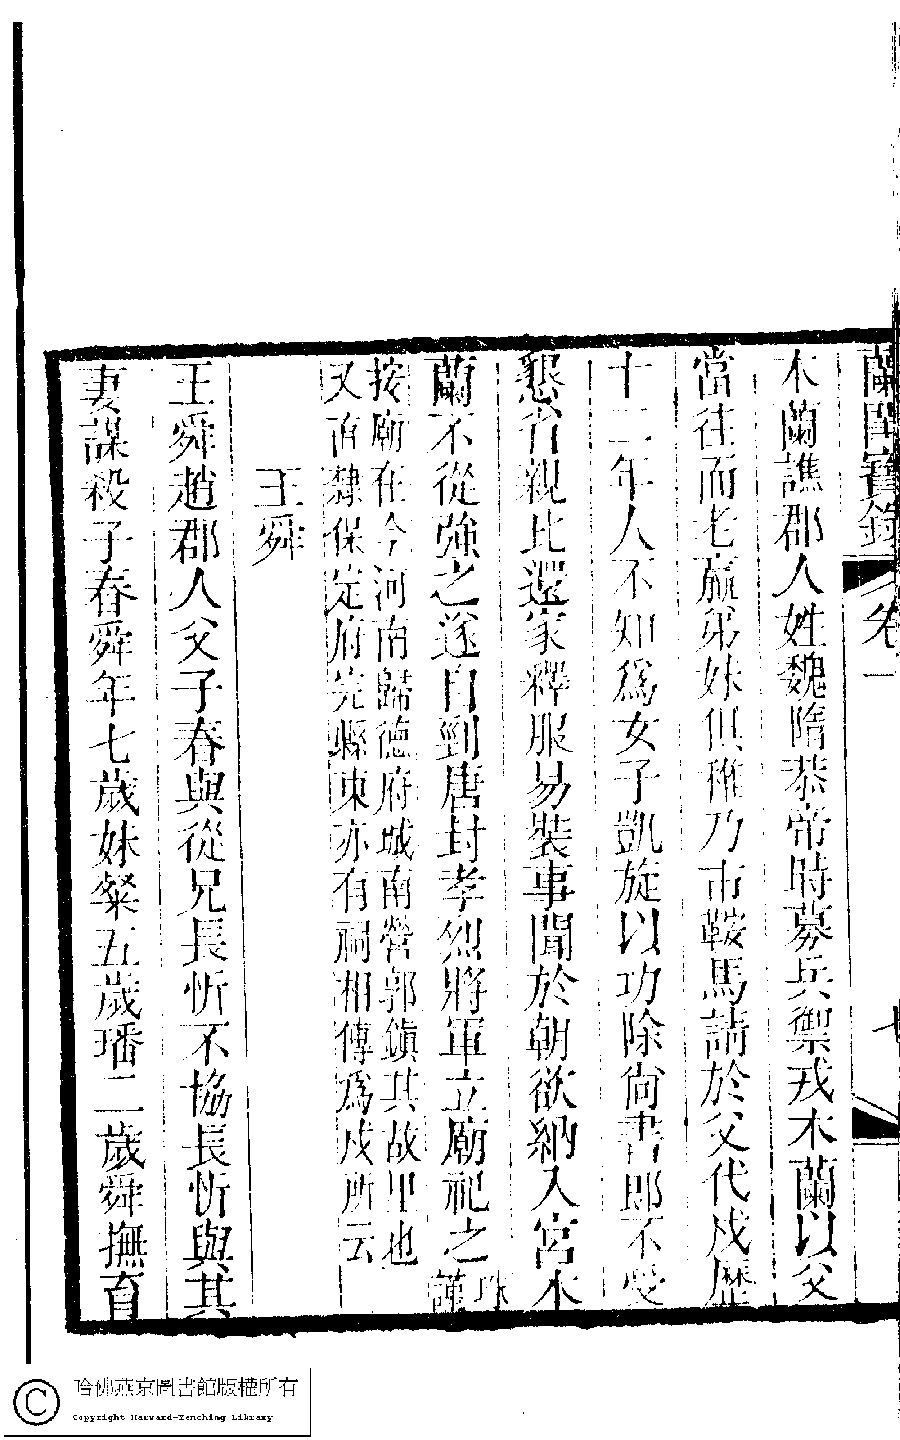 蘭閨寶錄 卷一 七
木蘭譙郡人姓魏隋恭帝時募兵禦戎木蘭以父
當往而老羸弟妹俱稚乃市鞍馬請於父代戍歷
十二年人不知為女子凱旋以功除尚書郎不受
懇省親比還家釋服易裝事聞於朝欲納入宮木
蘭不從強之遂自剄唐封孝烈將軍立廟祀之
按廟在今河南歸德府城南營郭鎮其故里也
又直隸保定府完縣東亦有祠相傳為戍所云
王舜
王舜趙郡人父子春與從兄長忻不協長忻與其
妻謀殺子春舜年七歲妹粲五歲璠二歲舜撫育
哈佛燕京圖書館版權所有
Copyright Harvard-Yenching Library